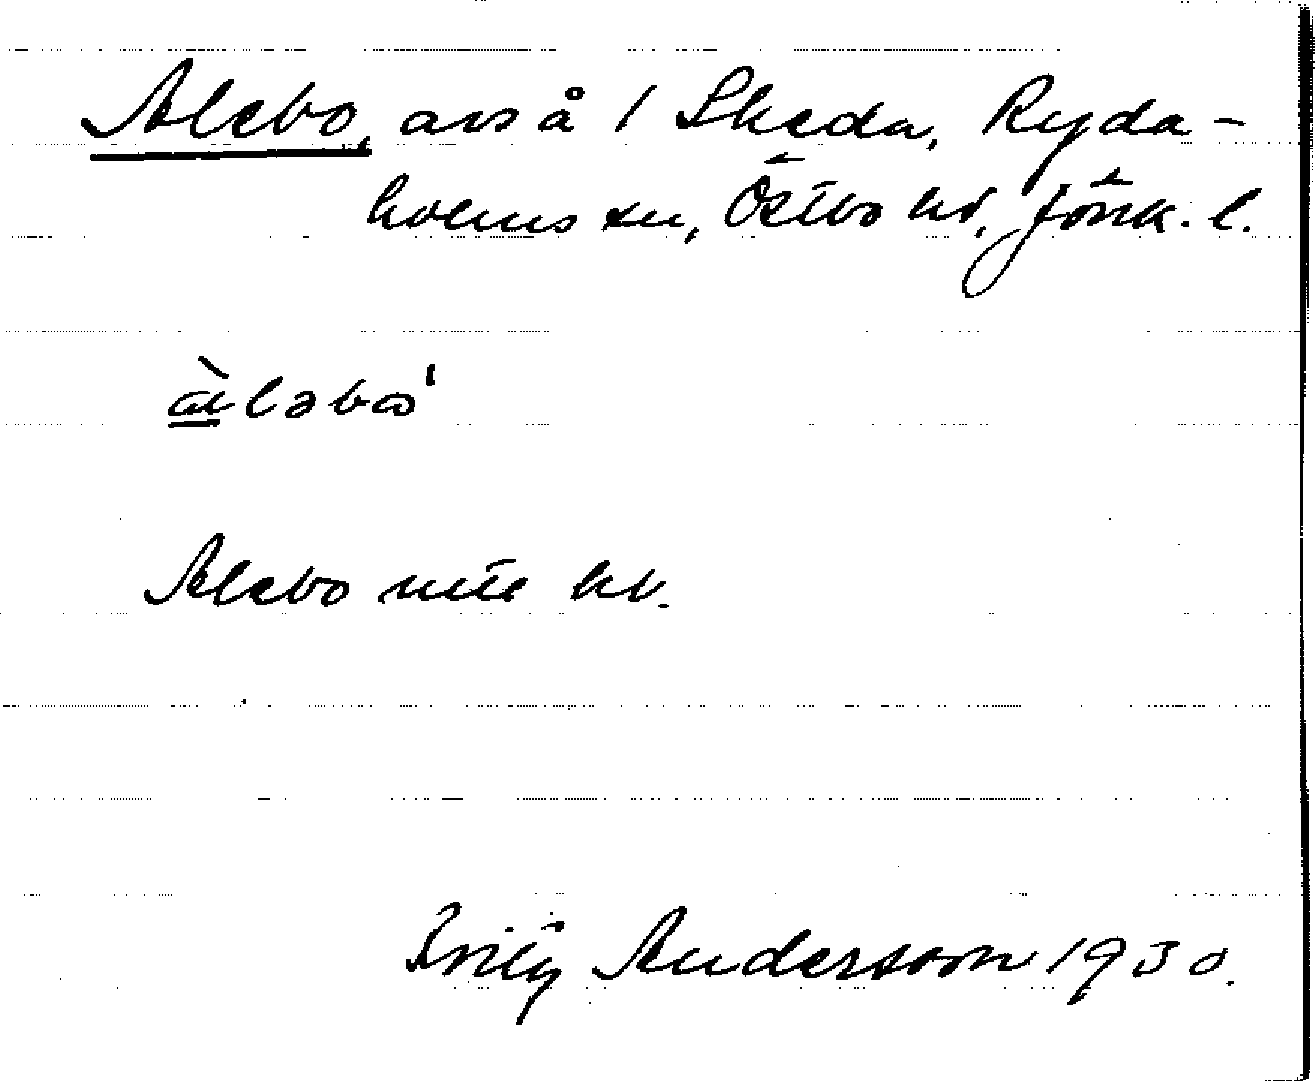 Alebo, avs å 1 Skeda, Ryda-
holms sn, Östbo hd, Jönk. l.
àləbω'
Alebo
Andersson 1930.